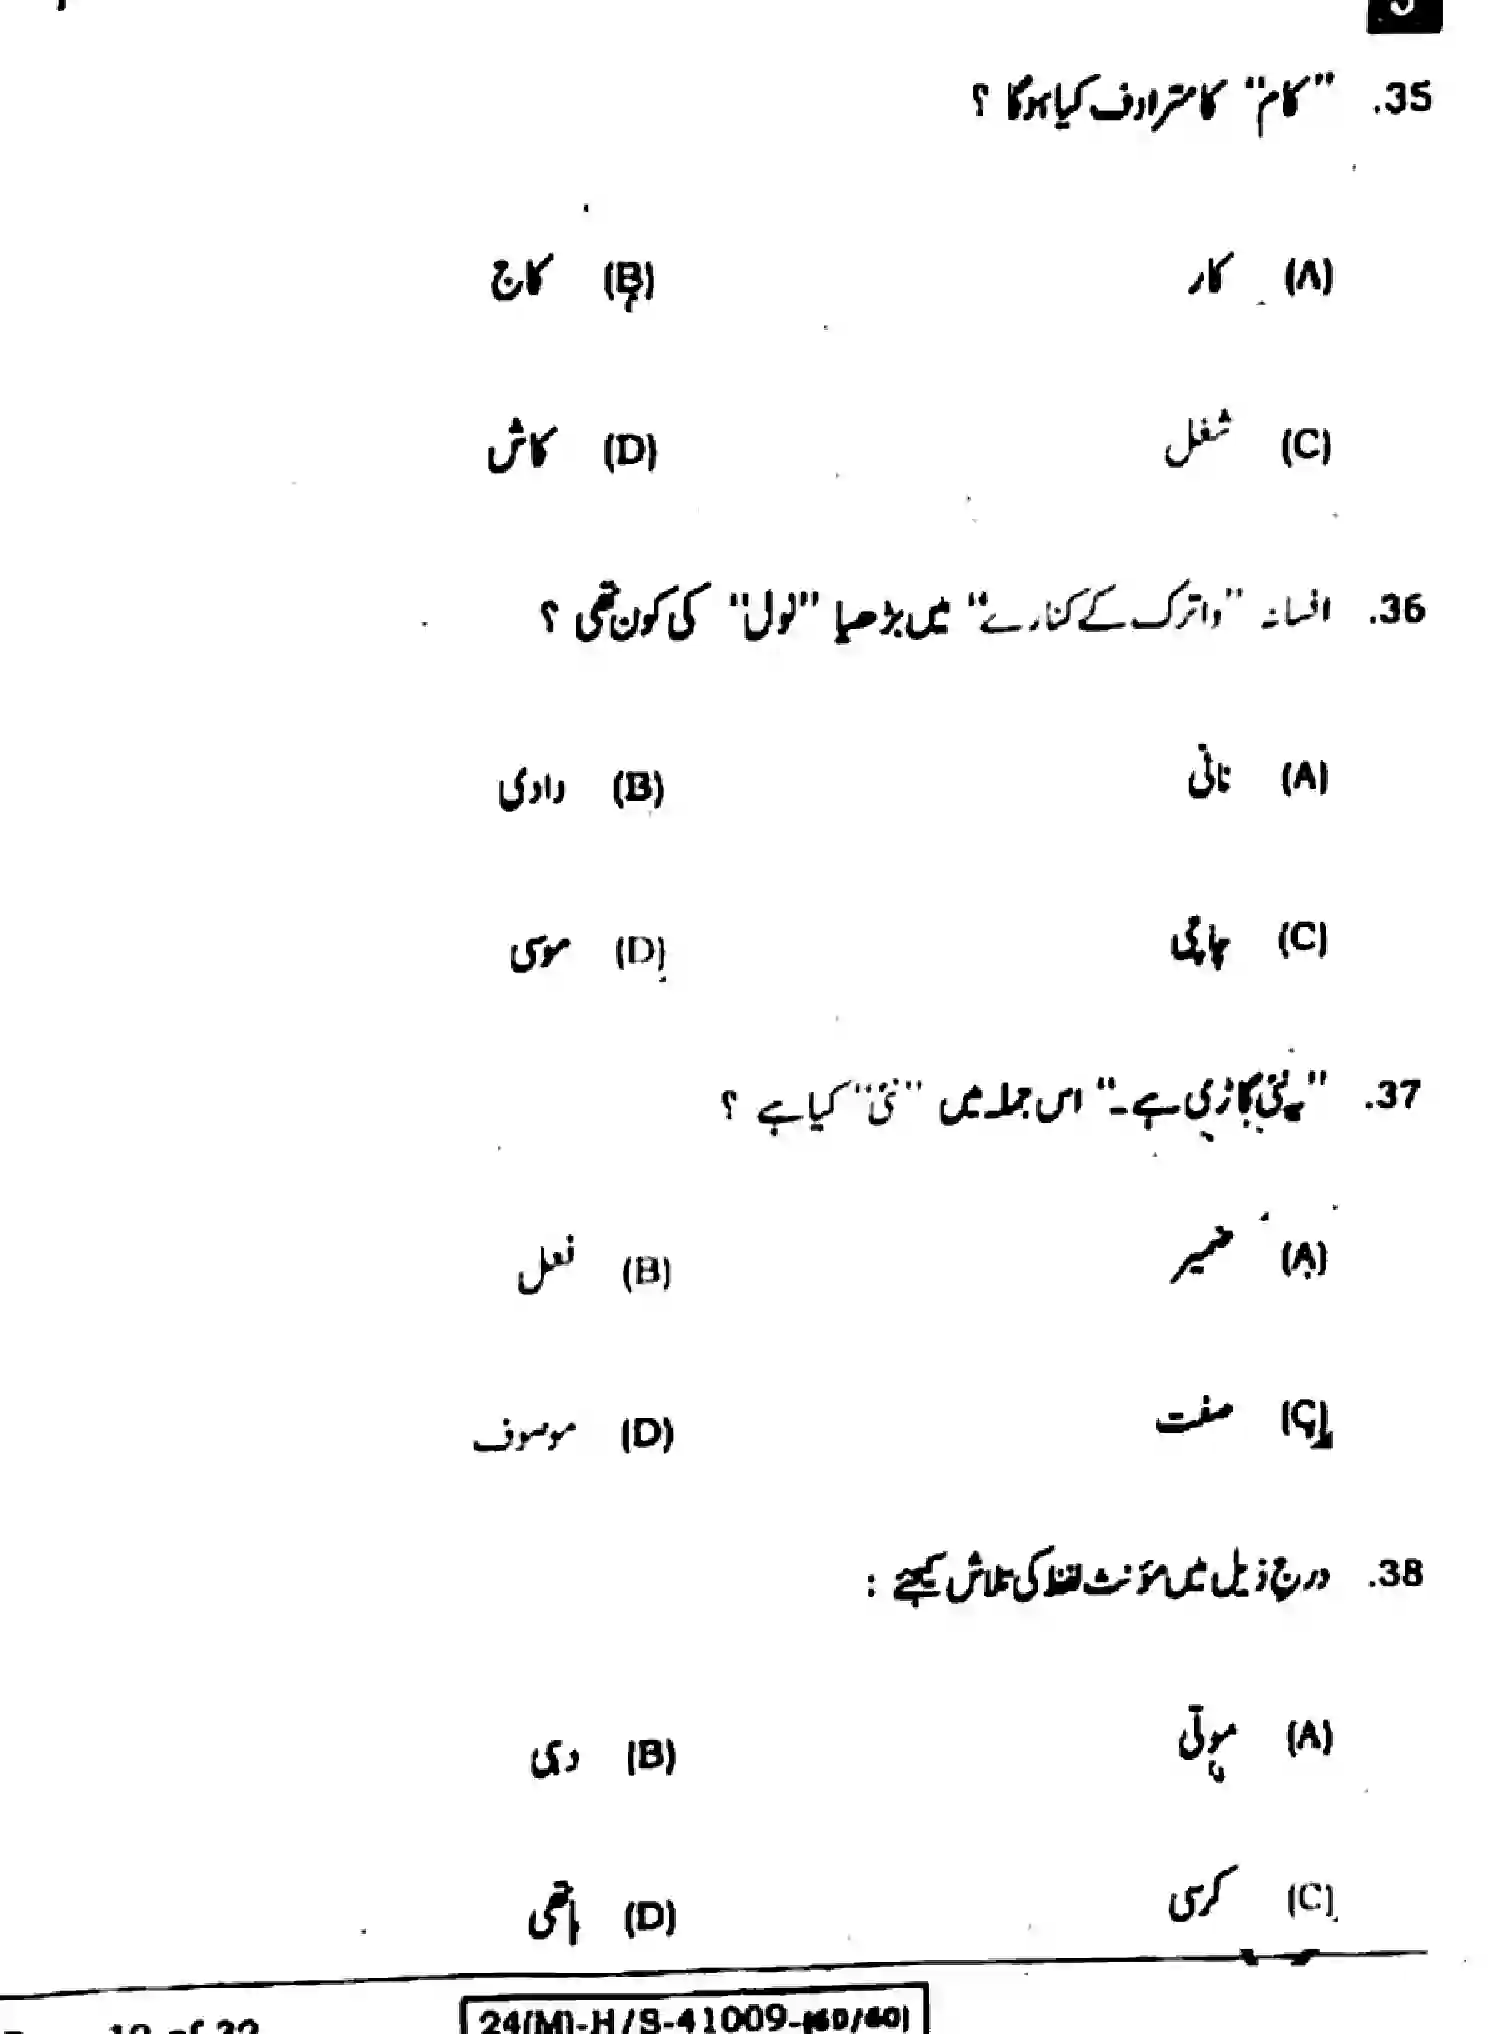 35. "کام" کا مترادف کیا ہوگا ؟
(A) کار (B) کاج
(C) شغل (D) کاش
36. افسانہ "واترک کے کنارے" میں بڑھیا "لول" کی کون تھی ؟
(A) نانی (B) دادی
(C) چاچی (D) موسی
37. "یہ نئی گاڑی ہے۔" اس جملہ میں "نئی" کیا ہے ؟
(A) ضمیر (B) فعل
(C) صفت (D) موصوف
38. درج ذیل میں مؤنث لفظ کی تلاش کیجئے :
(A) موتی (B) دہی
(C) کرسی (D) ہاتھی
24(M)-H/S-41009-(60/60)